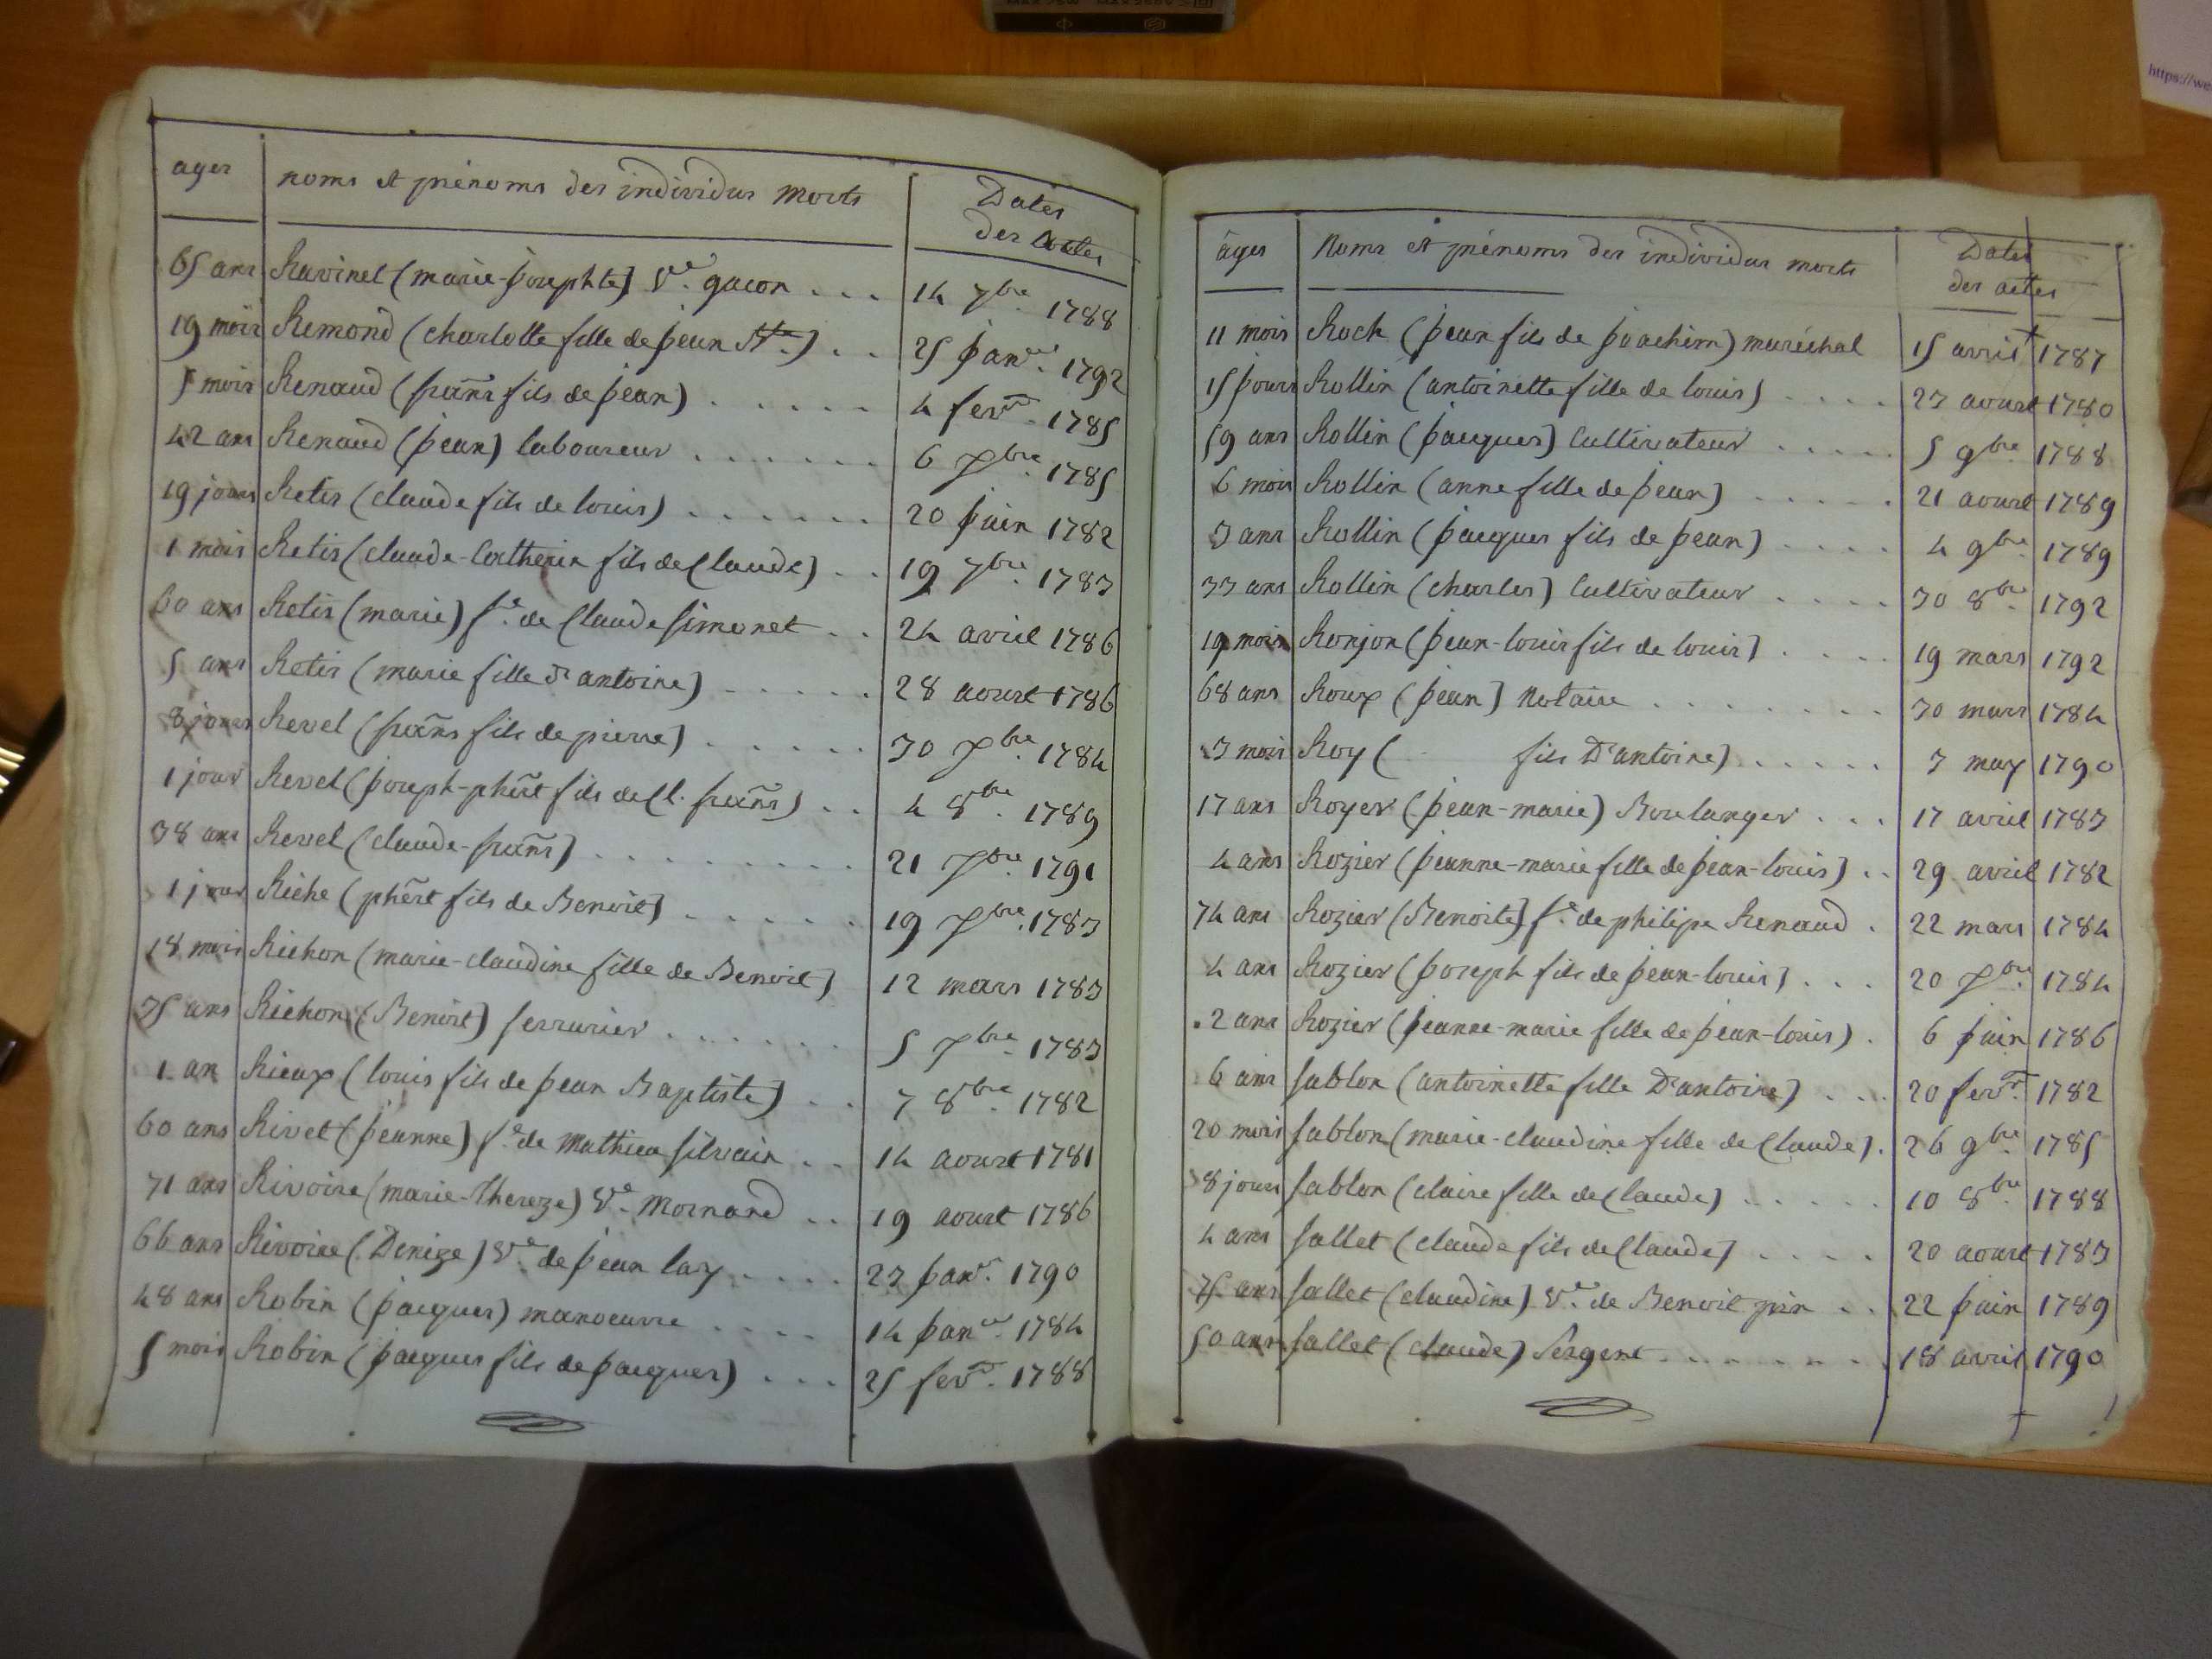 ages
noms et prénoms des individus morts
Dates
des actes
65 ans Ravinel (marie-josephte) Ve. gacon . . . 14 7bre. 1788
19 mois Remond (charlotte fille de jean Bte.) . . 25 janer. 1792
5 mois Renaud (frans fils de jean) . . . . . 4 fevr. 1785
42 ans Renaud (jean) laboureur . . . . . . 6 Xbre 1785
19 jours Retis (claude fils de louis) . . . . . . 20 juin 1782
1 mois Retis (claude-Catherin fils de Claude) . . 19 7bre. 1783
60 ans Retis (marie) fe. de Claude simonet . . 24 avril 1786
5 ans Retis (marie fille d'antoine) . . . . . . 28 aoust 1786
8 jours Revel (frans fils de pierre) . . . . . . 30 Xbre. 1784
1 jour Revel (joseph-phért fils de Cl. frans) . . 4 8bre. 1789
38 ans Revel (claude-frans) . . . . . . . . . 21 Xbre. 1791
1 jour Riche (phért fils de Benoit) . . . . . . 19 Xbre. 1783
18 mois Richon (marie-claudine fille de Benoit) 12 mars 1783
35 ans Richon (Benoit) serrurier . . . . . . 5 Xbre. 1783
1 an Rieux (louis fils de jean Baptiste) . . 7 8bre. 1782
60 ans Rivet (jeanne) fe. de Mathieu silvain . . 14 aoust 1781
71 ans Rivoire (marie-Thereze) Ve. Mornand . . 19 aoust 1786
66 ans Rivoire (Denize) Ve. de jean lay . . . . 23 janr. 1790
48 ans Robin (jacques) manoeuvre . . . . 14 janer. 1784
5 mois Robin (jacques fils de jacques) . . . 25 fevr. 1788
âges
Noms et prénoms des individus morts
Dates
des actes
11 mois Roch (jean fils de joachim) maréchal 15 avril 1787
15 jours Rollin (antoinette fille de louis) . . . . 23 aoust 1780
59 ans Rollin (jacques) Cultivateur . . . . . 5 9bre. 1788
6 mois Rollin (anne fille de jean) . . . . . 21 aoust 1789
3 ans Rollin (jacques fils de jean) . . . . 4 9bre. 1789
33 ans Rollin (charles) Cultivateur . . . . 30 8bre. 1792
19 mois Ronjon (jean-louis fils de louis) . . . . 19 mars 1792
68 ans Roux (jean) Notaire . . . . . . . . 30 mars 1784
3 mois Roy ( fils D'antoine) . . . . . 3 may 1790
17 ans Royer (jean-marie) Boulanger . . . 17 avril 1783
4 ans Rozier (jeanne-marie fille de jean-louis) . . 29 avril 1782
74 ans Rozier (Benoite) fe. de philipe Renaud . 22 mars 1784
4 ans Rozier (joseph fils de jean-louis) . . . 20 Xbre. 1784
2 ans Rozier (jeanne-marie fille de jean-louis) . 6 juin 1786
6 ans sablon (antoinette fille D'antoine) . . . 20 fevr. 1782
20 mois sablon (marie-claudine fille de Claude) . 26 9bre. 1785
8 jours sablon (claire fille de Claude) . . . . . 10 8bre 1788
4 ans sallet (claude fils de Claude) . . . . 20 aoust 1783
75 ans sallet (claudine) Ve. de Benoit pin . . 22 juin 1789
50 ans sallet (claude) Sergent . . . . . . . 18 avril 1790